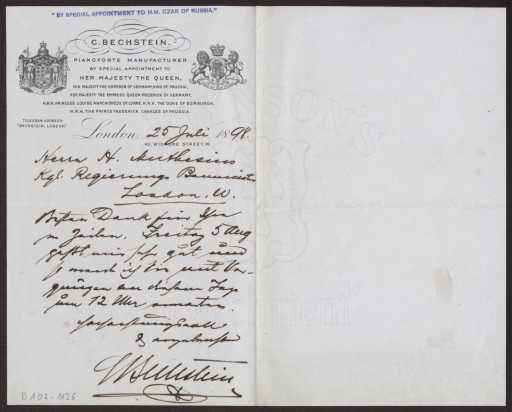 "BY SPECIAL APPOINTMENT TO H.M. CZAR OF RUSSIA."
C. BECHSTEIN.
PIANOFORTE MANUFACTURER
BY SPECIAL APPOINTMENT TO
HER MAJESTY THE QUEEN,
HIS MAJESTY THE EMPEROR OF GERMANY, KING OF PRUSSIA,
HER MAJESTY THE EMPRESS QUEEN FREDERICK OF GERMANY,
H.R.H. PRINCESS LOUISE MARCHIONESS OF LORNE, H.R.H. THE DUKE OF EDINBURGH,
H.R.H. THE PRINCE FREDERICK CHARLES OF PRUSSIA.
TELEGRAM ADDRESS:
"BECHSTEIN, LONDON"
London, 25 Juli 1898.
40, WIGMORE STREET, W.
Herrn H. Muthesius
Kgl. Regierungs Baumeister
London. W.
Besten Dank für Ihre
w Zeilen. Freitag 5 Aug
paßt mir sehr gut und
so werde ich Sie mit Ver-
gnügen an diesem Tage
um 12 Uhr erwarten.
Hochachtungsvoll
& ergebenst
C Bechstein
D 102-1126